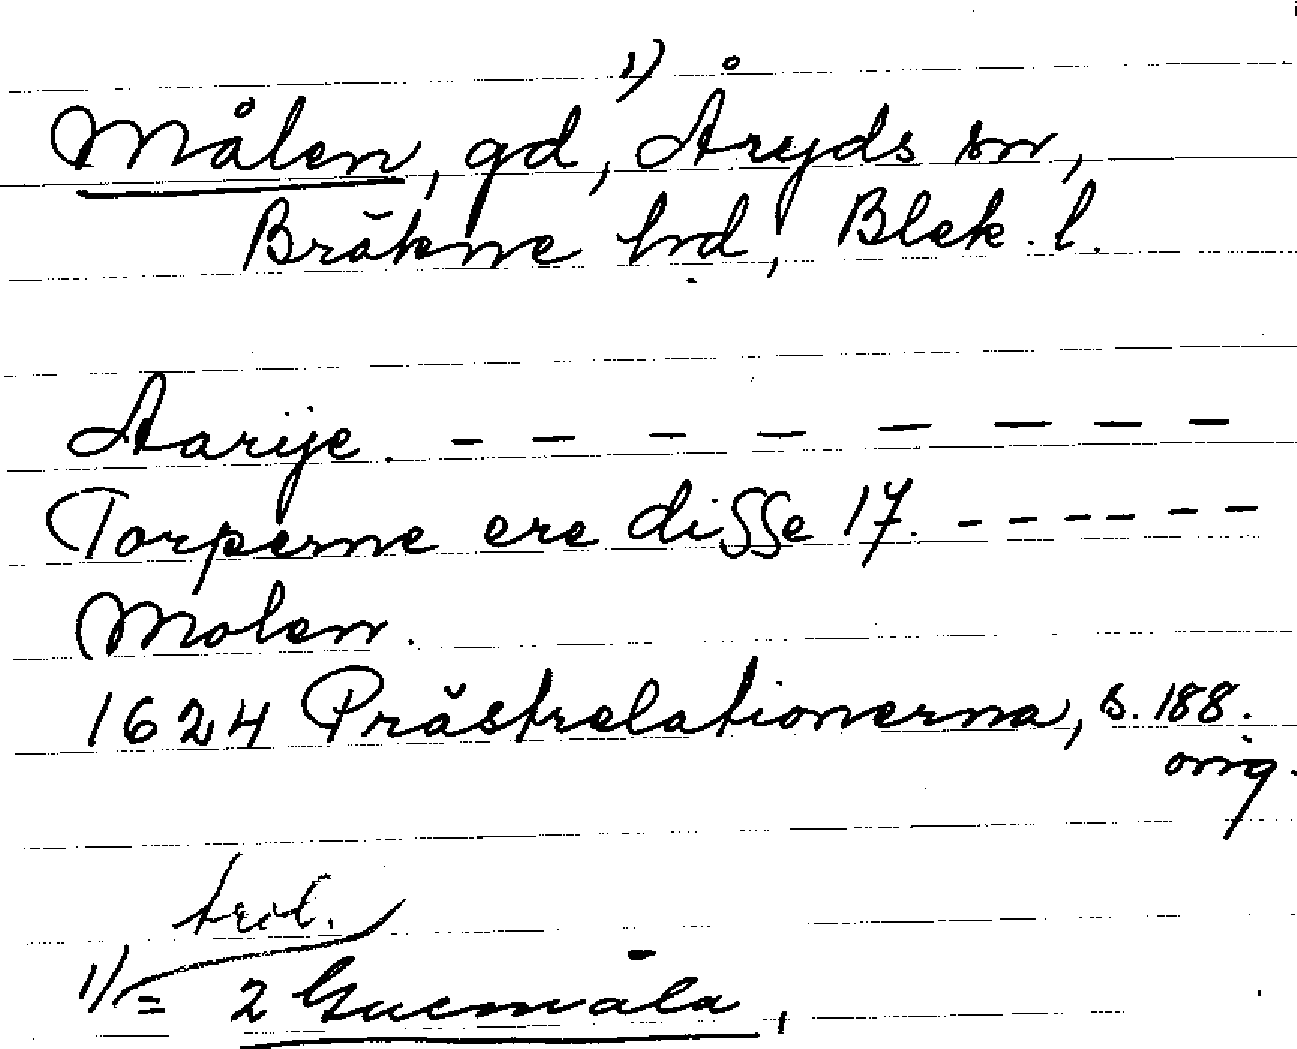 Målen, gd, ¹⁾ Åryds sn,
Bräkne hd, Blek. l.
Aarije. - - - - - - - -
Torperne ere disse 17. - - - - - -
Molen.
1624 Prästrelationerna, s. 188.
orig.
trol.
1) = 2 Guemåla,